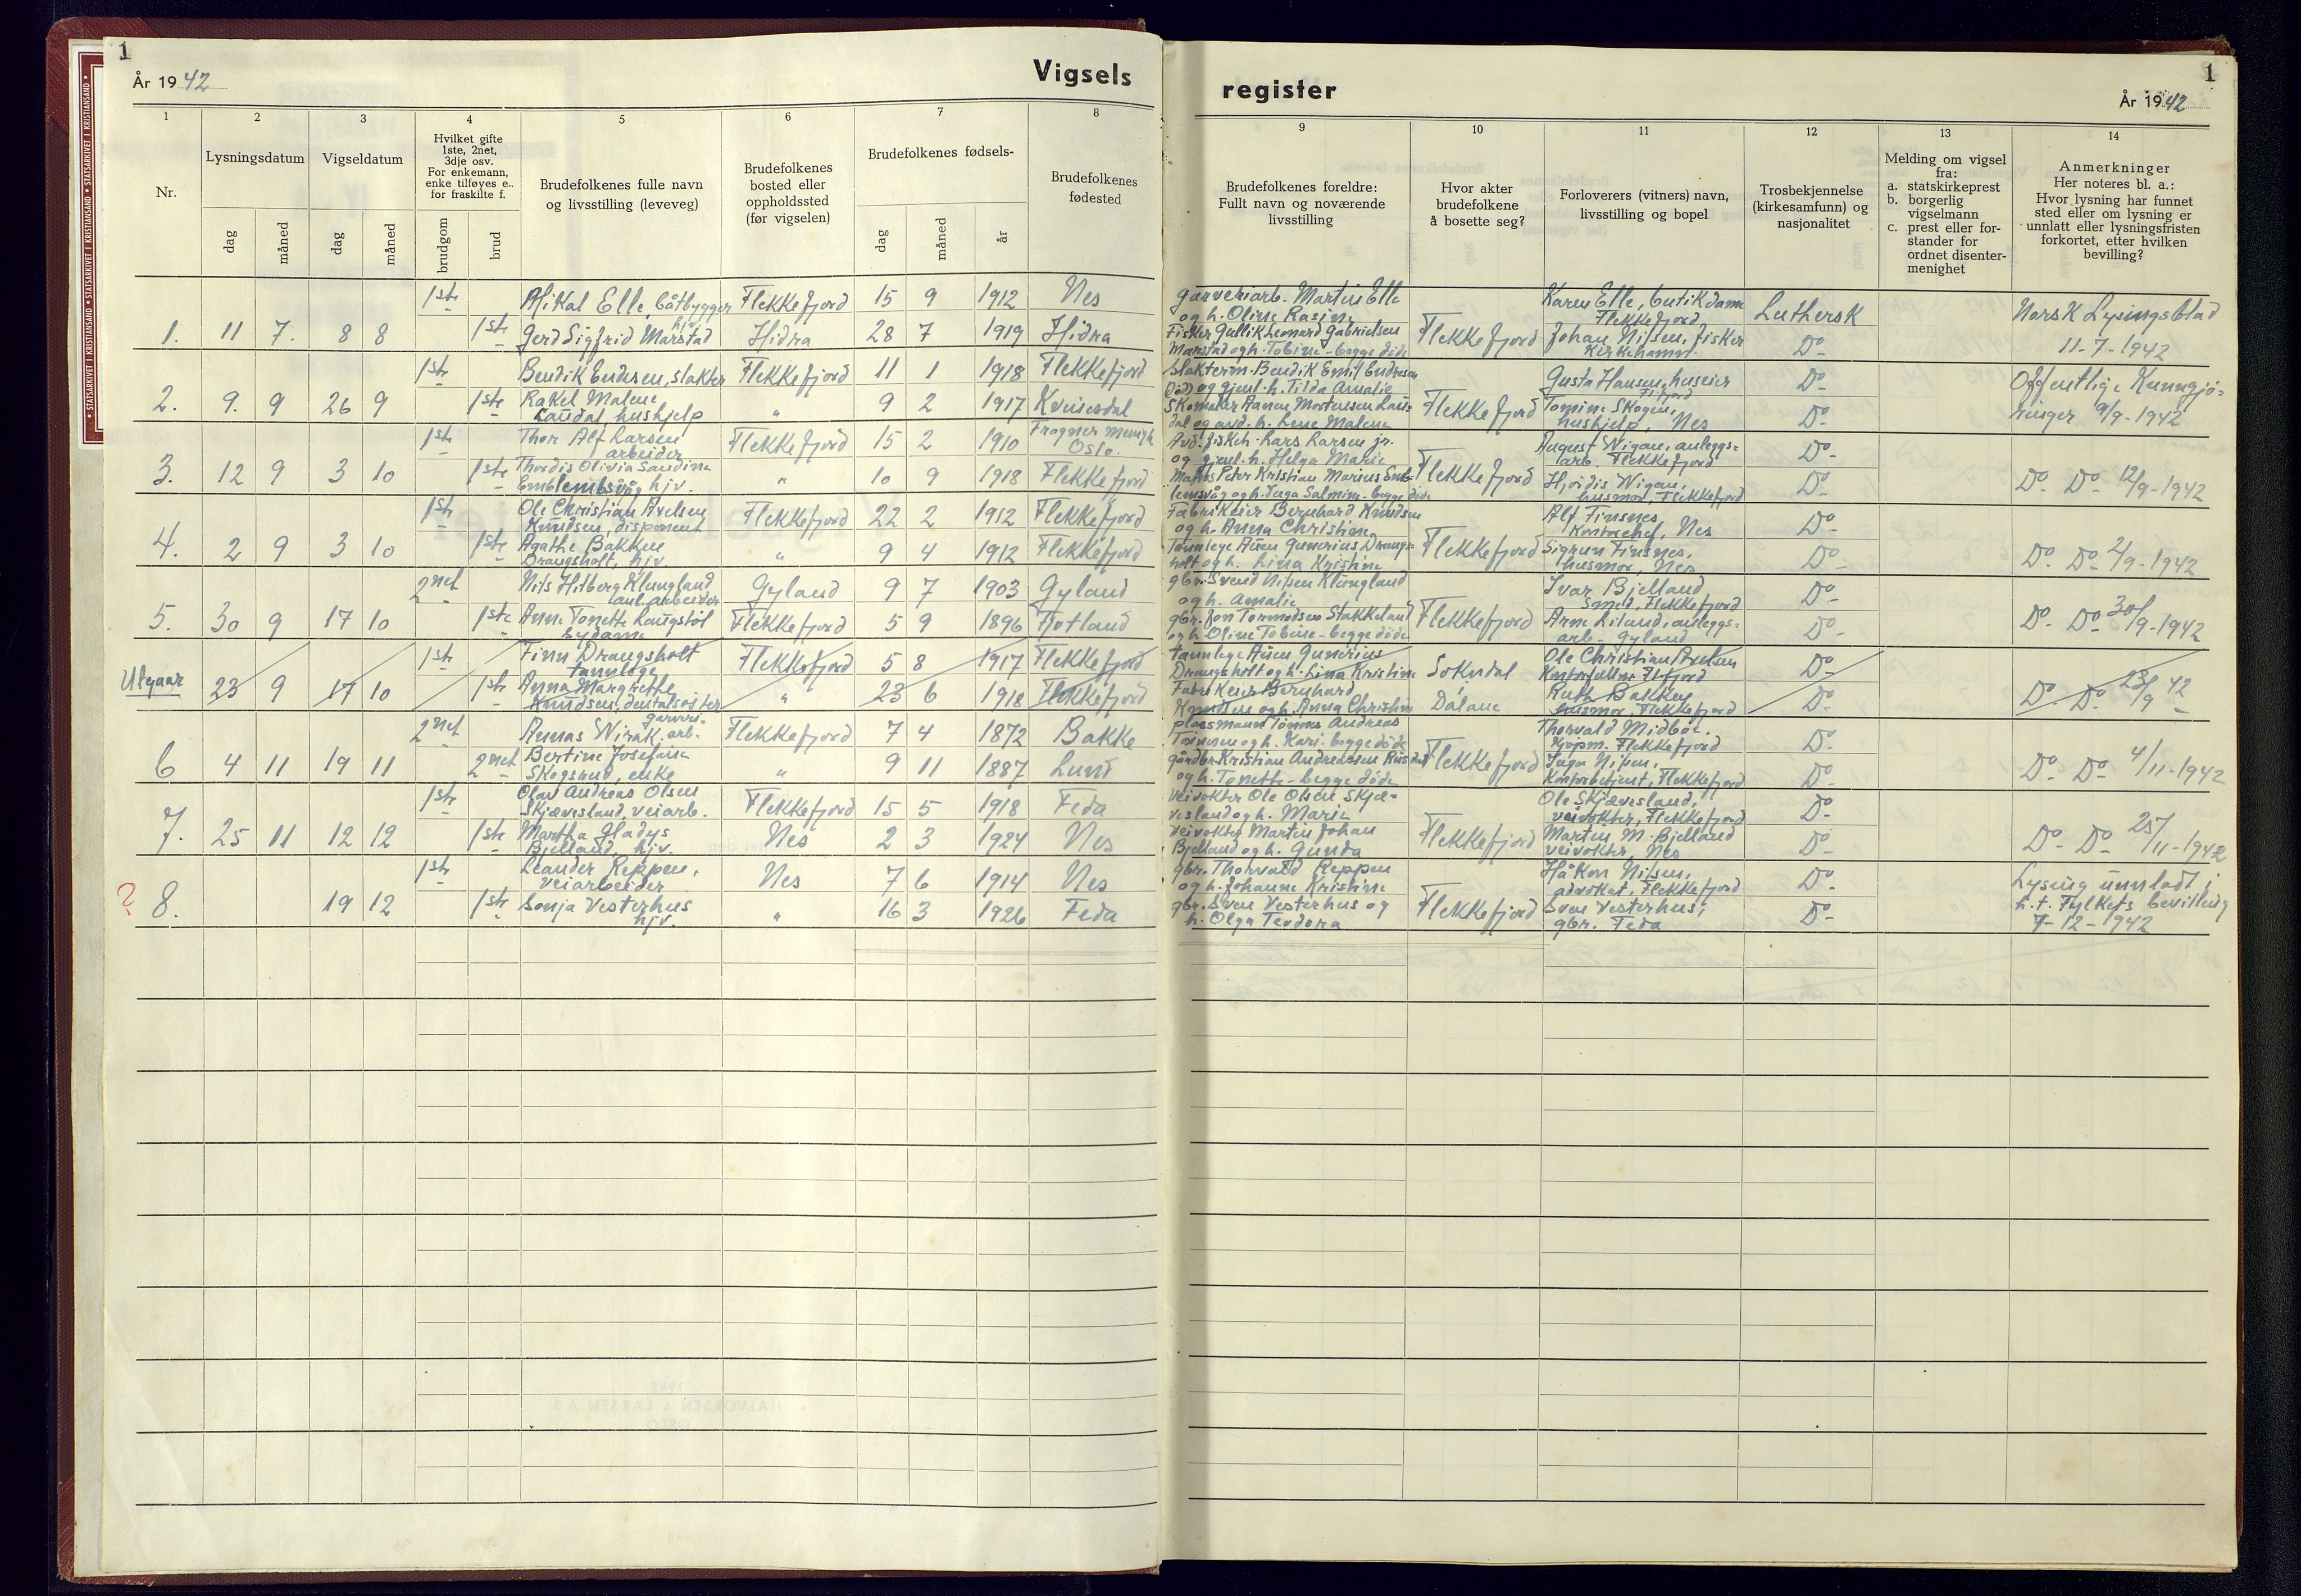 1
År 1942
Vigsels
register
År 1942
1
1
2
3
4
5
6
7
8
9
10
11
12
13
14
Nr.
Lysningsdatum
dag
måned
Vigseldatum
dag
måned
Hvilket gifte
1ste, 2net,
3dje osv.
For enkemann,
enke tilføyes e..
for fraskilte f.
brudgom
brud
Brudefolkenes fulle navn
og livsstilling (leveveg)
Brudefolkenes
bosted eller
oppholdssted
(før vigselen)
Brudefolkenes fødsels-
dag
måned
år
Brudefolkenes
fødested
Brudefolkenes foreldre:
Fullt navn og nåværende
livsstilling
Hvor akter
brudefolkene
å bosette seg?
Forloverers (vitners) navn,
livsstilling og bopel
Trosbekjennelse
(kirkesamfunn) og
nasjonalitet
Melding om vigsel
fra:
a. statskirkeprest
b. borgerlig
vigselmann
c. prest eller for-
stander for
ordnet disenter-
menighet
Anmerkninger
Her noteres bl. a.:
Hvor lysning har funnet
sted eller om lysning er
unnlatt eller lysningsfristen
forkortet, etter hvilken
bevilling?
1ste Mikal Elle, båtbygger Flekkefjord 15 9 1912 Nes
1. 11 7. 8 8 1ste Gerd Sigfrid Marstad hjv. Hidra 28 7 1919 Hidra
garveriarb. Martin Elle
og h. Oline Rasine
Fisker Gullik Leonard Gabrielsen
Marstad og h. Tobine - begge døde
Flekkefjord
Karen Elle, butikdame
Flekkefjord
Johan Nilsen, fisker
Kirkehamn.
Luthersk
Do-
Norsk Lysingsblad
11-7-1942
1ste Bendik Endresen, slakter Flekkefjord 11 1 1918 Flekkefjord
2. 9. 9 26 9 1ste Rakel Malene
Laudal, hushjelp " 9 2 1917 Kvinesdal
Slakterm. Bendik Emil Endresen
(død) og gjenl. h. Tilda Amalie
Skomaker Aanen Mortensen Lau=
dal og avd. h. Lene Malene
Flekkefjord
Gusta Hansen, huseier
Fl.fjord
Tomine Skogen,
hushjelp, Nes
Do-
Do-
Offentlige Kunngjø=
ringer 9/9-1942
1ste Thor Alf Larsen
arbeider Flekkefjord 15 2 1910 Frogner menigh.
Oslo.
3. 12 9 3 10 1ste Thordis Olivia Sandine
Emblemsvåg hjv. " 10 9 1918 Flekkefjord
Avd. fiskeh. Lars Larsen jr.
og gjenl. h. Helga Marie
Peter Kristian Marius Emb=
lemsvåg og h. Inga Salmine - begge døde
Flekkefjord
August Wigan, anleggs=
arb. Flekkefjord
Hjørdis Wigan,
husmor, Flekkefjord
Do-
Do-
Do- Do- 12/9-1942
1ste Ole Christian Axelsen
Knudsen, disponent Flekkefjord 22 2 1912 Flekkefjord
4. 2 9 3 10 1ste Agathe Bakken
Drangsholt, hjv. " 9 4 1912 Flekkefjord
Fabrikeier Bernhard Knudsen
og h. Anna Christine
Tannlege Anen Gunerius Drangs=
holt og h. Lina Kristine
Flekkefjord
Alf Finsnes,
Kontorchef, Nes
Sigrun Finsnes,
husmor, Nes
Do-
Do-
Do- Do- 2/9-1942
2net Nils Hilberg Klungland
anl.arbeider Gyland 9 7 1903 Gyland
5. 30 9 17 10 1ste Anne Tonette Laugstøl
Sydame Flekkefjord 5 9 1896 Fjotland
gbr. Svend Nilsen Klungland
og h. Amalie
gbr. Jon Tormodsen Stakkeland
og h. Oline Tobine - begge døde
Flekkefjord
Ivar Bjelland
Smed, Flekkefjord
Arne Liland, anleggs=
arb. Gyland
Do-
Do-
Do- Do- 30/9-1942
1ste Finn Drangsholt
tannlege Flekkefjord 5 8 1917 Flekkefjord
Utgaar 23 9 17 10 1ste Anna Margrethe
Knudsen, dentalsøster " 23 6 1918 Flekkefjord
tannlege Anen Gunerius
Drangsholt og h. Lina Kristine
Fabrikeier Bernhard
Knudsen og h. Anna Christine
Sokndal
Dalane
Ole Christian Axelsen
Kontorfullm. Fl.fjord
Ruth Bakken
husmor, Flekkefjord
Do-
Do-
Do- Do- 23/9 42
2net Annas Wirak garveri-
arb. Flekkefjord 7 4 1872 Bakke
6 4 11 19 11 2net Bertine Josefine
Skogsrud, enke " 9 11 1887 Lund
plassmann Tønnes Andreas
Tønnesen og h. Kari - begge døde
gårdbr. Kristian Andreassen
og h. Tonette - begge døde
Flekkefjord
Thorvald Midbøe,
Kjøpm. Flekkefjord
Inga Nilsen,
Kontorbetjent, Flekkefjord
Do-
Do-
Do- Do- 4/11-1942
1ste Olav Andreas Olsen
Skjævesland, veiarb. Flekkefjord 15 5 1918 Feda
7. 25 11 12 12 1ste Martha Gladys
Bjelland, hjv. Nes 2 3 1924 Nes
Veivokter Ole Olsen Skjæ=
vesland og h. Marie
Veivokter Martin Johan
Bjelland og h. Gunda
Flekkefjord
Ole Skjævesland,
veivokter, Flekkefjord
Martin M. Bjelland
veivokter, Nes
Do-
Do-
Do- Do- 25/11-1942
1ste Leander Reppen,
veiarbeider Nes 7 6 1914 Nes
? 8. 19 12 1ste Sonja Vesterhus
hjv. " 16 3 1926 Feda
gbr. Thorvald Reppen
og h. Johanne Kristine
gbr. Sven Vesterhus og
h. Olga Teodora
Flekkefjord
Håkon Nilsen,
advokat, Flekkefjord
Sven Vesterhus,
gbr. Feda
Do-
Do-
Lysing unnladt i
h.t. Fylkets bevilling
7-12-1942
STATSARKIVET I KRISTIANSAND • STATSARKIVET I KRISTIANSAND • STATSARKIVET I KRISTIANSAND •